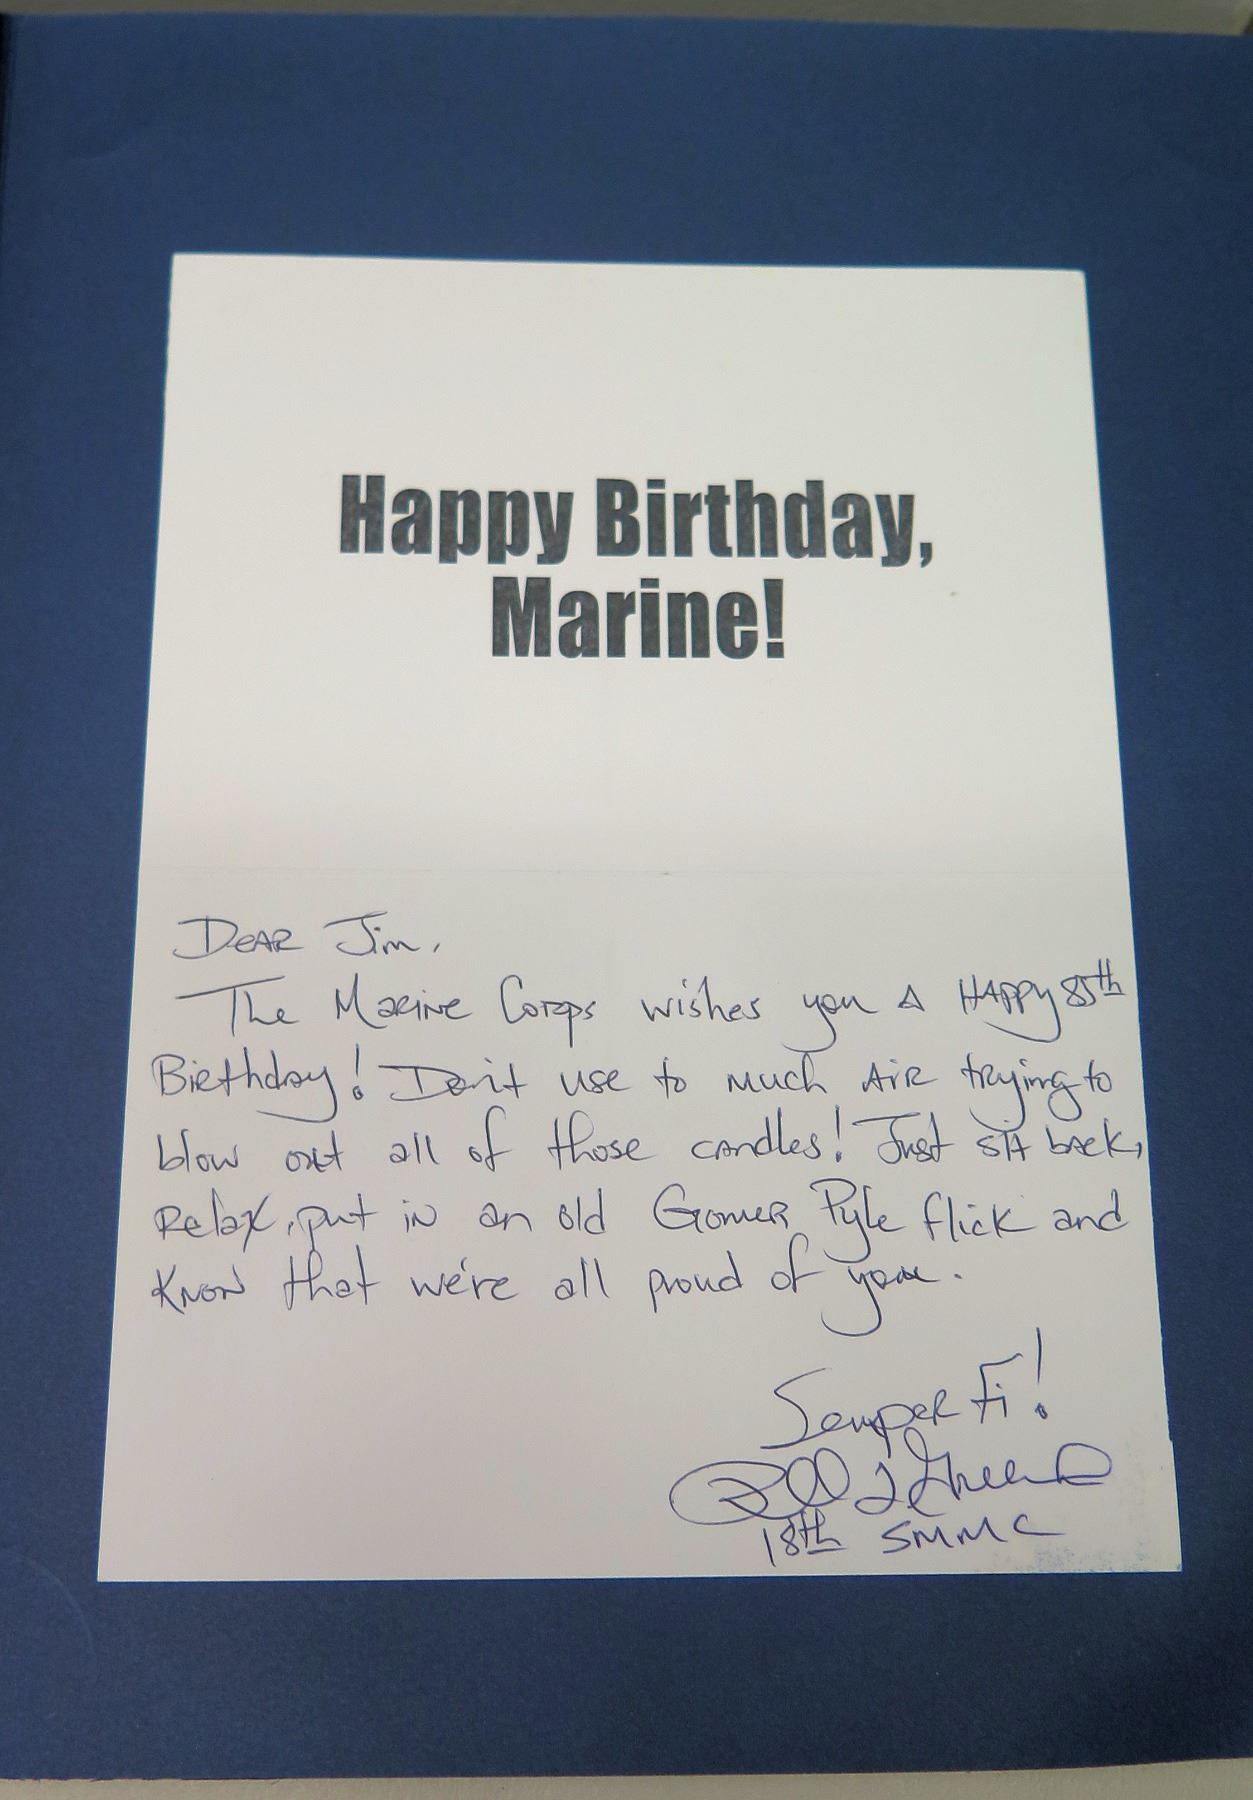 Happy Birthday,
Marine!
Dear Jim,
The Marine Corps wishes you a Happy 85th
Birthday! Don't use to much air trying to
blow out all of those candles! Just sit back,
relax, put in an old Gomer Pyle flick and
know that we're all proud of you.
Semper Fi!
18th SMMC